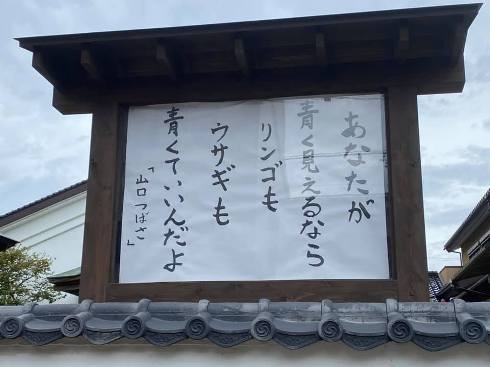 あなたが
青く見えるなら
リンゴも
ウサギも
青くていいんだよ
「山口つばさ」